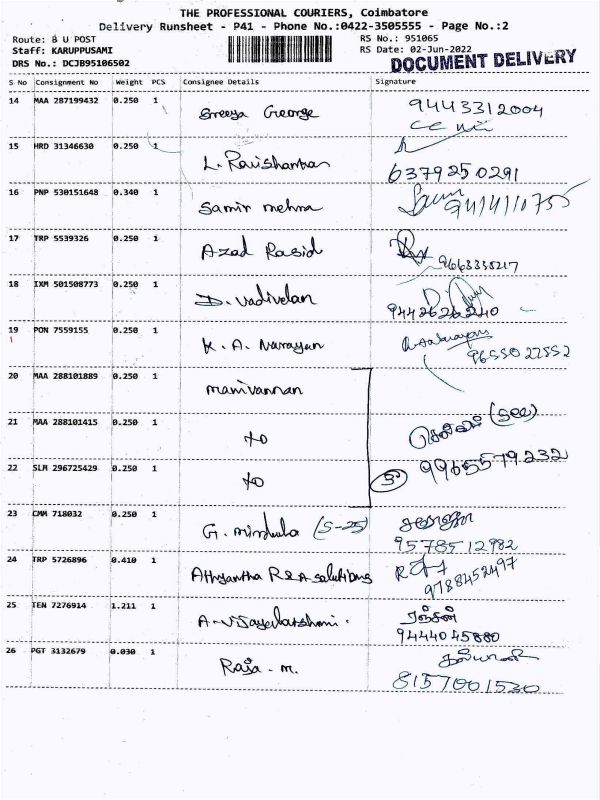 THE PROFESSIONAL COURIERS, Coimbatore
Delivery Runsheet - P41 - Phone No.:0422-3505555 - Page No.:2
Route: B U POST
RS No.: 951065
Staff: KARUPPUSAMI
RS Date: 02-Jun-2022
DRS No.: DCJB95106502
DOCUMENT DELIVERY
S No Consignment No Weight PCS Consignee Details Signature
14 MAA 287199432 0.250 1 Sreeya George 9443312004
15 HRD 31346630 0.250 1 L. Ravishankar 6379250291
16 PNP 530151648 0.340 1 Samir mehra 9414110755
17 TRP 5539326 0.250 1 Azad Rasid 9663335217
18 IXM 501508773 0.250 1 D. Vadivelan 9442626240
19 PON 7559155 0.250 1 K. A. Narayan 9655022552
20 MAA 288101889 0.250 1 manivannan
21 MAA 288101415 0.250 1 to
22 SLM 296725429 0.250 1 to 9965579232
23 CMM 718032 0.250 1 G. mirdula (S-25) 9578512982
24 TRP 5726896 0.410 1 Athyantha R&A solutions 9788452497
25 TEN 7276914 1.211 1 A. Vijayalakshmi. ரஞ்சன்
9444045880
26 PGT 3132679 0.030 1 Raja - m. கல்யாணி
8157001530